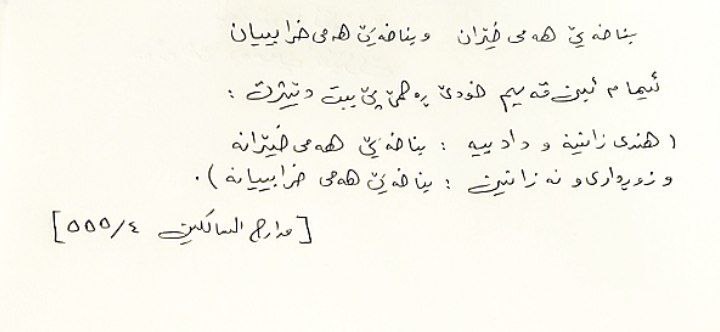 بناخەیێ هەمی خێران وبناخەیێ هەمی خرابییان
ئیمام ئبن قەییم خودێ ڕەحمێ پێ ببت دبێژت :
( هندی زانینە و دادییە : بناخەیێ هەمی خێرانە
و زۆرداری و نەزانین : بناخەیێ هەمی خرابییانە ) .
[ مدارج السالكين ٤/٥٥٥ ]